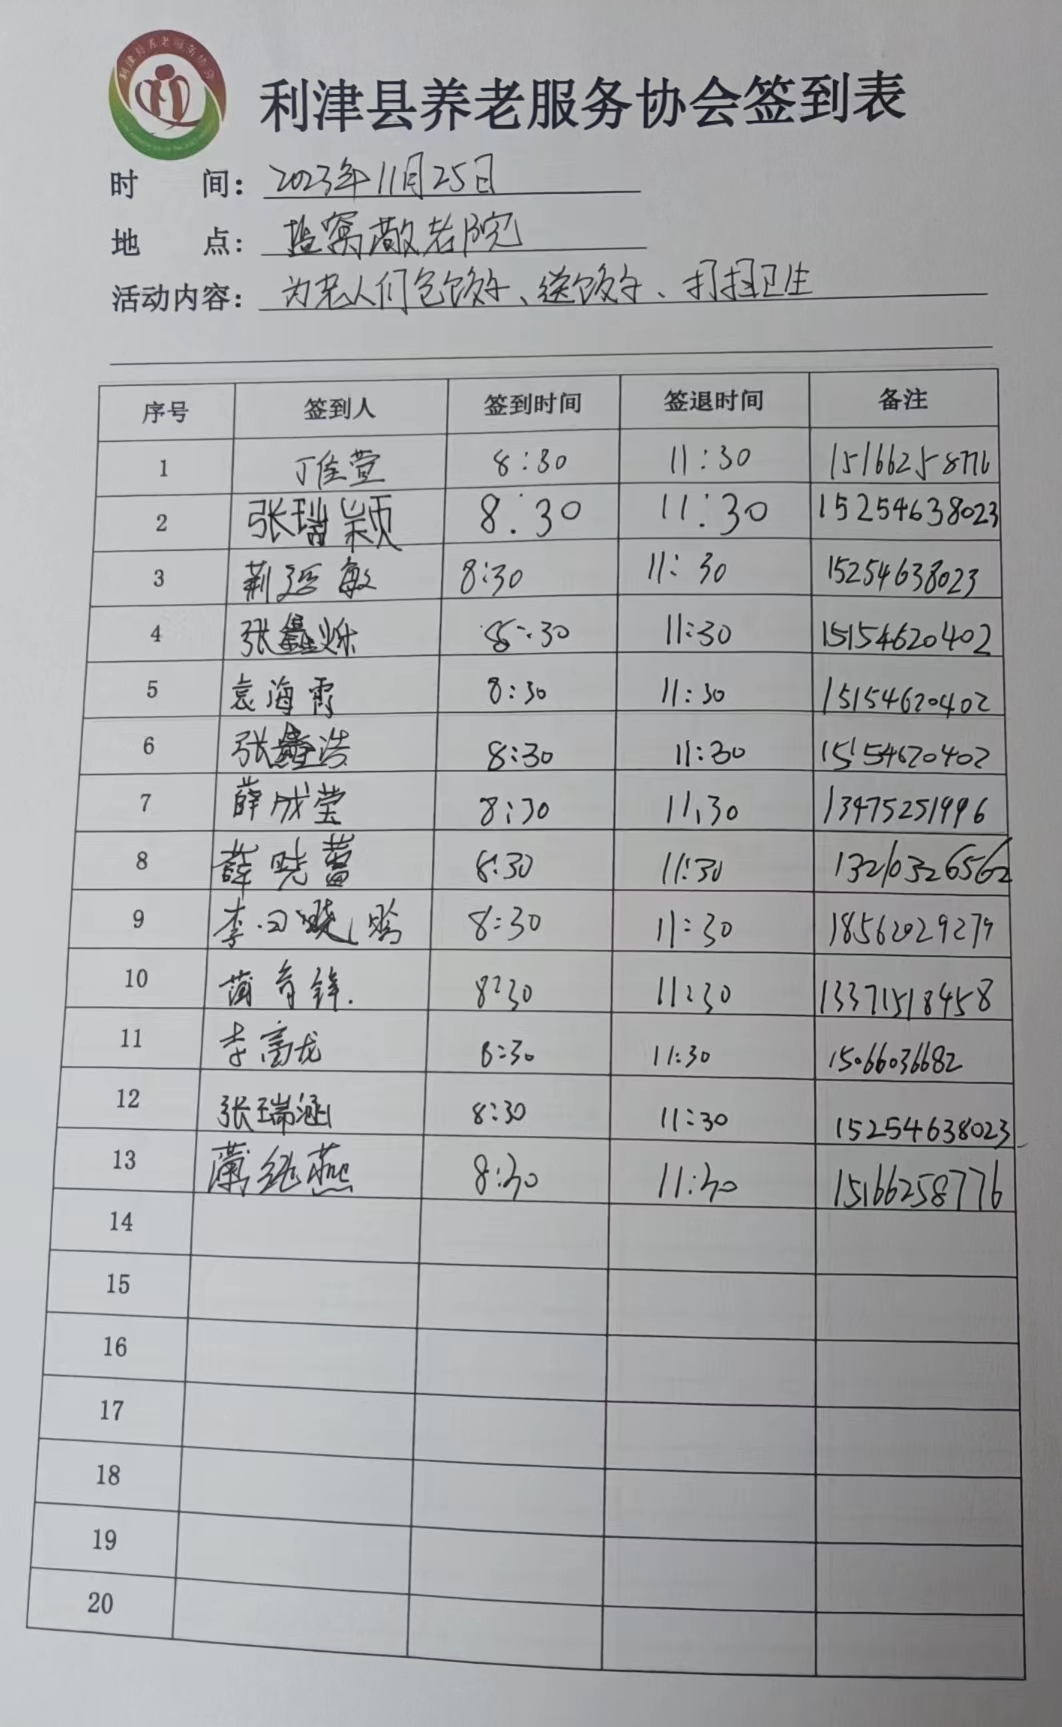 利津县养老服务协会
利津县养老服务协会签到表
时 间: 2023年11月25日
地 点: 盐窝敬老院
活动内容: 为老人们包饺子、送饺子、打扫卫生
序号 签到人 签到时间 签退时间 备注
1 丁佳萱 8:30 11:30 15166258776
2 张瑞颖 8:30 11:30 15254638023
3 荆 敏 8:30 11:30 15254638023
4 张鑫烁 8:30 11:30 15154620402
5 袁海霞 8:30 11:30 15154620402
6 张鑫浩 8:30 11:30 15154620402
7 薛成莹 8:30 11:30 13475251996
8 薛晓蕾 8:30 11:30 13210326562
9 李 晓 8:30 11:30 18562029279
10 8:30 11:30 13371518458
11 李高龙 8:30 11:30 15066036682
12 张瑞涵 8:30 11:30 15254638023
13 燕 8:30 11:30 15166258776
14
15
16
17
18
19
20